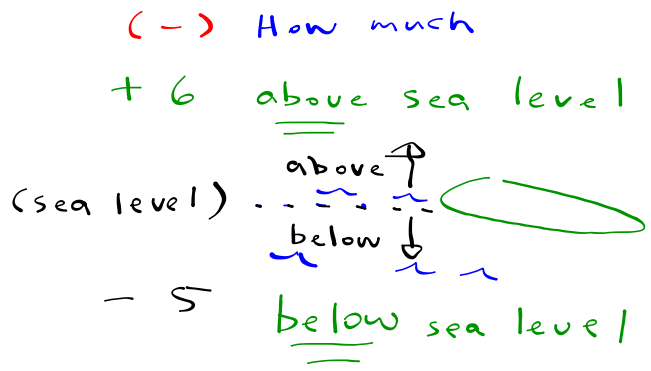 (-) How much
+ 6 above sea level
above
(sea level)
below
- 5 below sea level